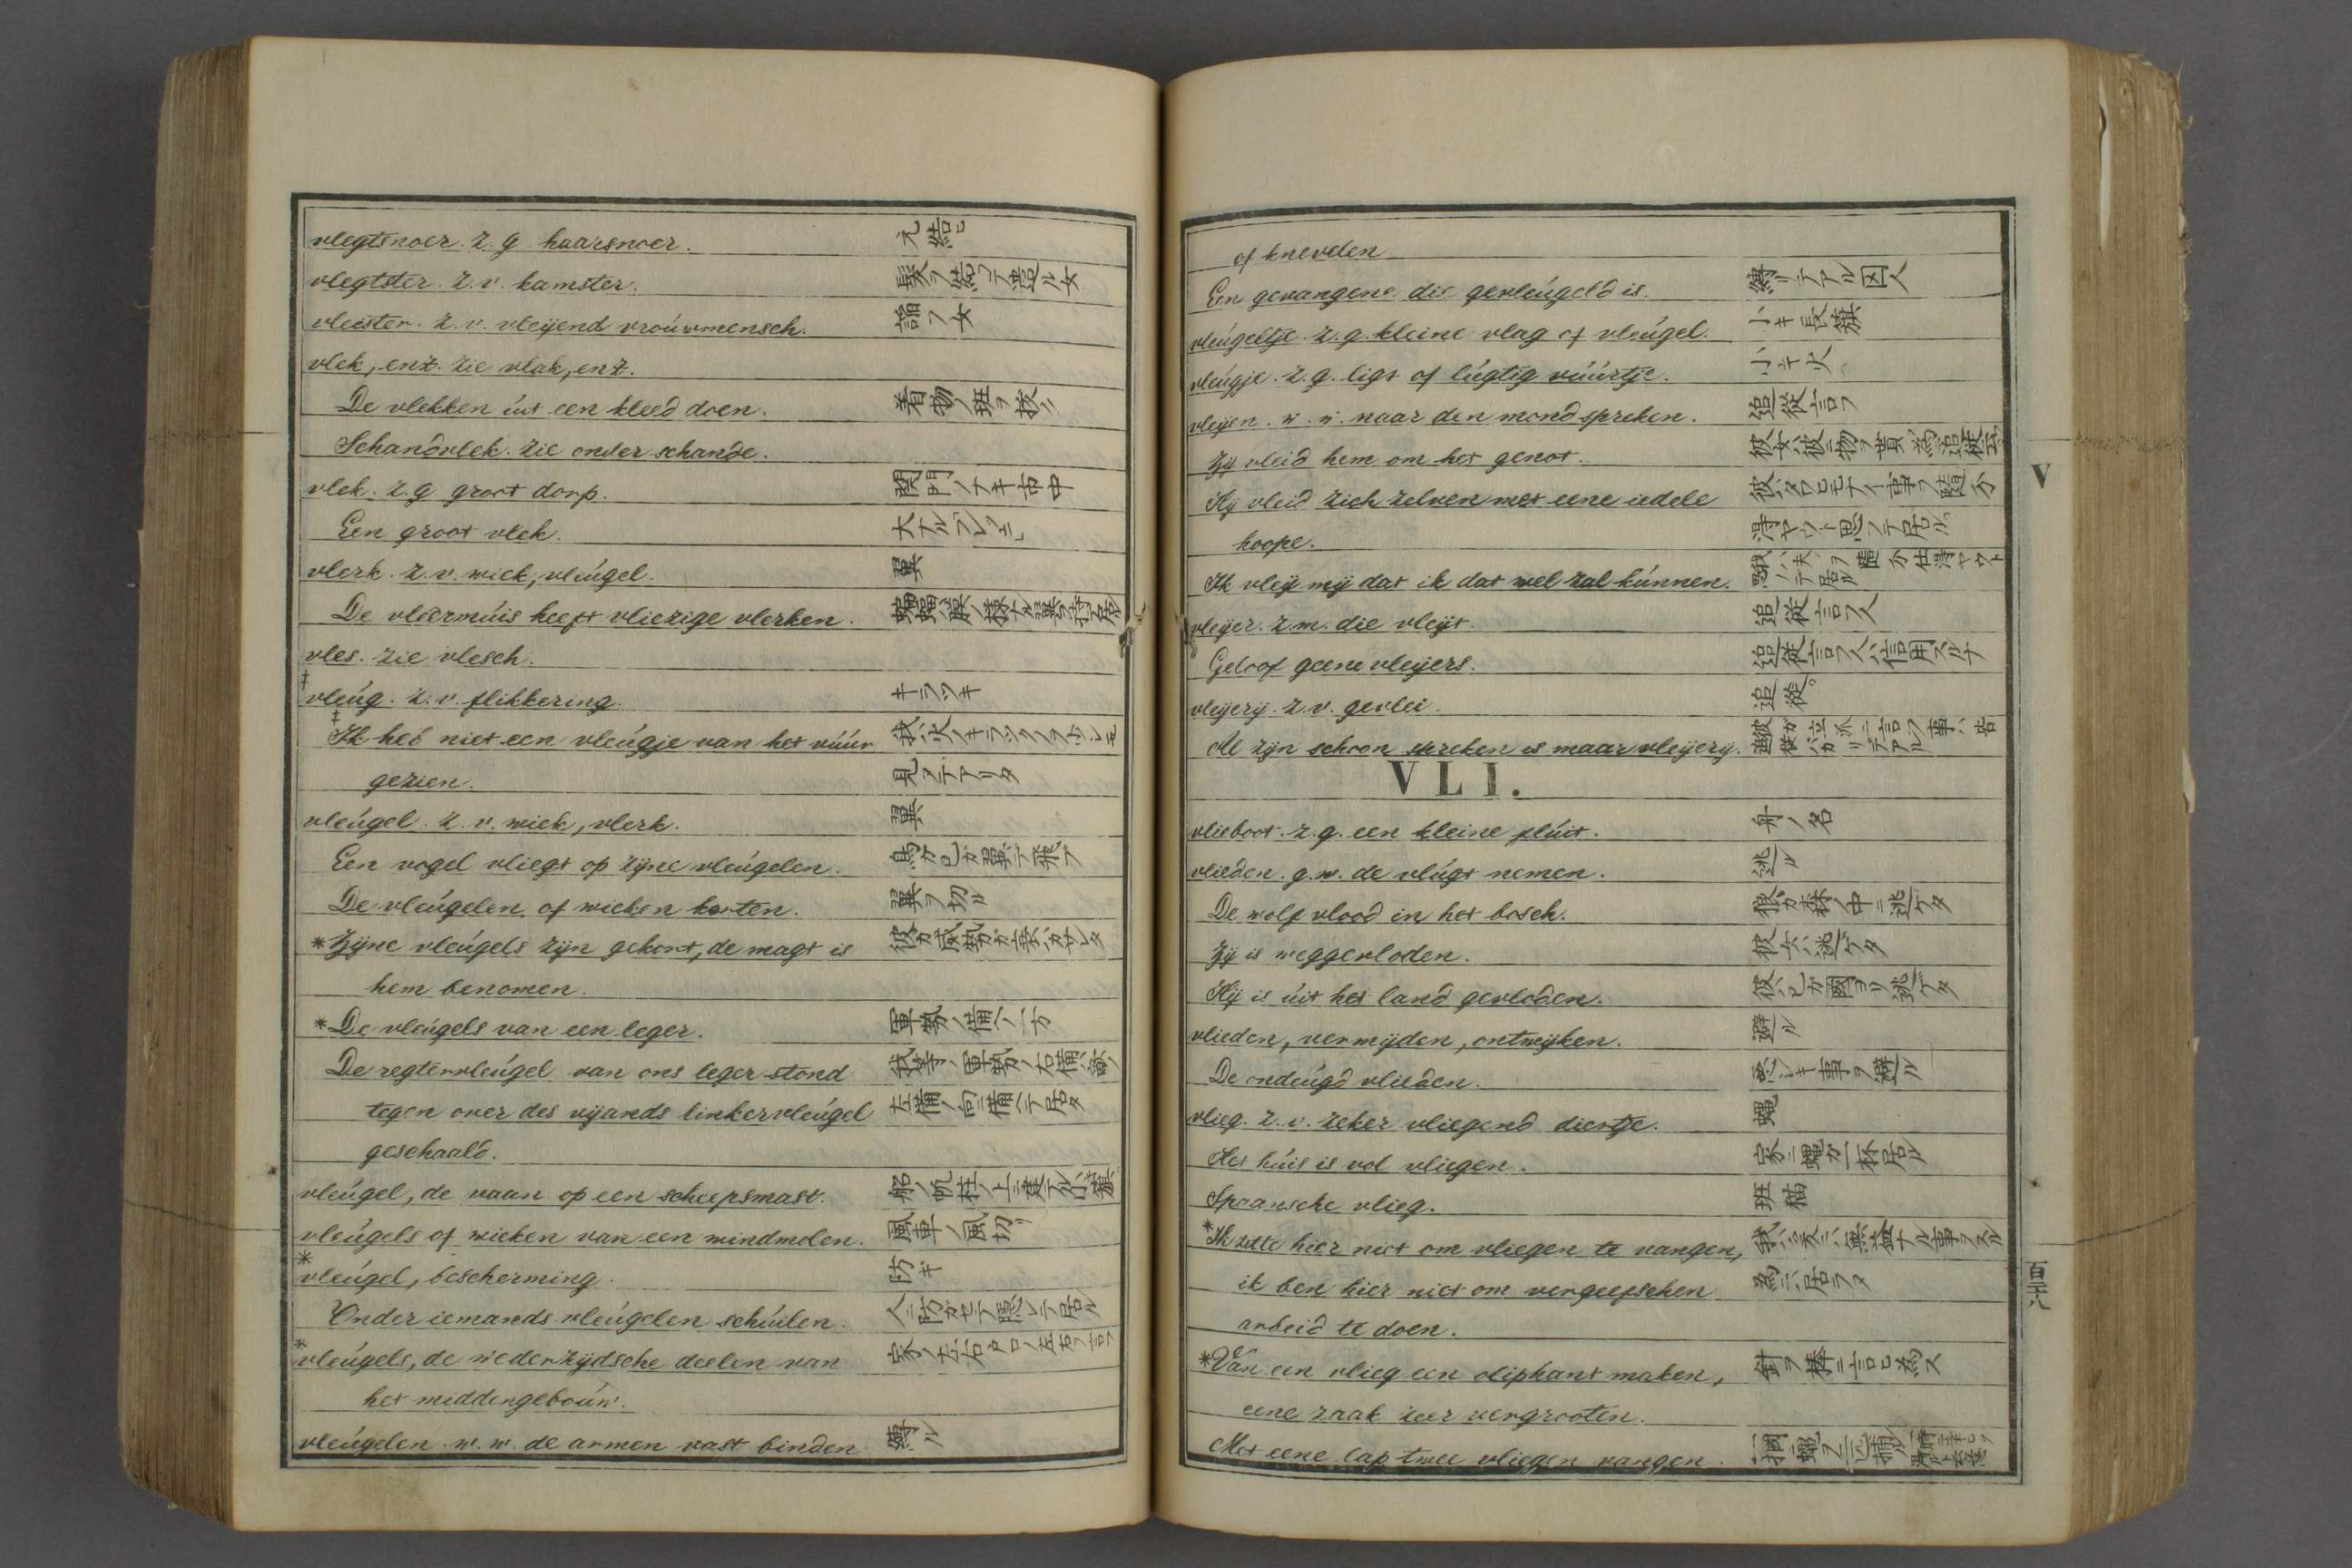 vlegtsnoer. z. g. haarsnoer. 元結ヒ
vlegtster. z. v. kamster. 髪ヲ結フテ遣ル女
vleister. z. v. vleijend vroúwmensch. 諂フ女
vlek, enz. zie vlak, enz.
De vlekken úit een kleed doen. 着物ノ斑ヲ抜ク
Schandvlek. zie onder schande.
vlek. z. g. groot dorp. 関門ノナキ市中
Een groot vlek. 大ナル
vlerk. z. v. wiek, vleúgel. 翼
De vleermúis heeft vliezige vlerken. 蝙蝠ハ
vles. zie vlesch.
‡vleúg. z. v. flikkering. キラツキ
‡Ik heb niet een vleúgje van het vúúr 我ハ火ノキラツクヲ少シモ
gezien. 見ヌテアリタ
vleúgel. z. v. wiek, vlerk. 翼
Een vogel vliegt op zijne vleúgelen. 鳥ガ己ガ翼デ飛ブ
De vleúgelen of wieken korten. 翼ヲ切ル
*Zijne vleúgels zijn gekort, de magt is 彼ガ威勢ガ
hem benomen.
*De vleúgels van een leger. 軍勢ノ備ヘノ一方
De regtervleúgel van ons leger stond 我等ノ軍勢ノ右備ハ敵ノ
tegen over des vijands linkervleúgel 左備ノ向ニ備ヘテ居タ
geschaald.
vleúgel, de vaan op een scheepsmast. 船ノ帆柱ノ上ニ建テル小旗
vleúgels of wieken van een windmolen. 風車ノ風切リ
*vleúgel, bescherming. 防ギ
Onder iemands vleúgelen schúilen. 人ニ防ガセテ隠レテ居ル
*vleúgels, de wederzijdsche deelen van 家ノ左右戸口ノ左右ヲ言フ
het middengeboúw.
vleúgelen. w. w. de armen vast binden 縛ル
of knevelen
Een gevangene die gevleúgeld is. 縛リテアル囚人
vleúgeltje. z. g. kleine vlag of vleúgel. 小キ長旗
vleúgje. z. g. ligt of lúgtig vúúrtje. 小キ火
vleijen. w. w. naar den mond spreken. 追従言フ
Zij vleid hem om het genot. 彼女ハ彼ニ物ヲ貰フ為ニ追従云
Hij vleid zich zelven met eene iedele 彼ハタワヒモナイ事ヲ随分
hoope. 得ヤウト思フテ居ル
Ik vleij mij dat ik dat wel zal kúnnen. 我ハ夫レヲ随分仕得ヤウト思フテ居ル
vleijer. z. m. die vleijt. 追従言フ人
Geloof geene vleijers. 追従言フ人ハ信用スルナ
vleijerij. z. v. gevlei. 追従
Al zijn schoon spreken is maar vleijerij. 彼ガ立派ニ言フ事ハ皆追従バカリデアル
VLI.
vlieboot. z. g. een kleine flúit. 舟ノ名
vlieden. g. w. de vlúgt nemen. 逃ル
De wolf vlood in het bosch. 狼ガ森ノ中ニ逃ゲタ
Zij is weggevloden. 彼女ハ逃ゲタ
Hij is úit het land gevloden. 彼ハ己ガ國ヨリ逃ゲタ
vlieden, vermijden, ontwijken. 避ル
De ondeúgd vlieden. 悪シキ事ヲ避ル
vlieg. z. v. zeker vliegend diertje. 蠅
Het húis is vol vliegen. 家ニ蠅ガ一杯居ル
Spaansche vlieg. 班猫
*Ik zitte hier niet om vliegen te vangen, 我ハ爰ニハ無益ナル事ヲスル
ik ben hier niet om vergeefschen 為ニハ居ラヌ
arbeid te doen.
*Van een vlieg een oliphant maken, 針ヲ棒ニ言ヒ為ス
eene zaak zeer vergrooten.
Met eene lap twee vliegen vangen. 一摑ニ蠅ヲ二匹捕ル
V
百三十八